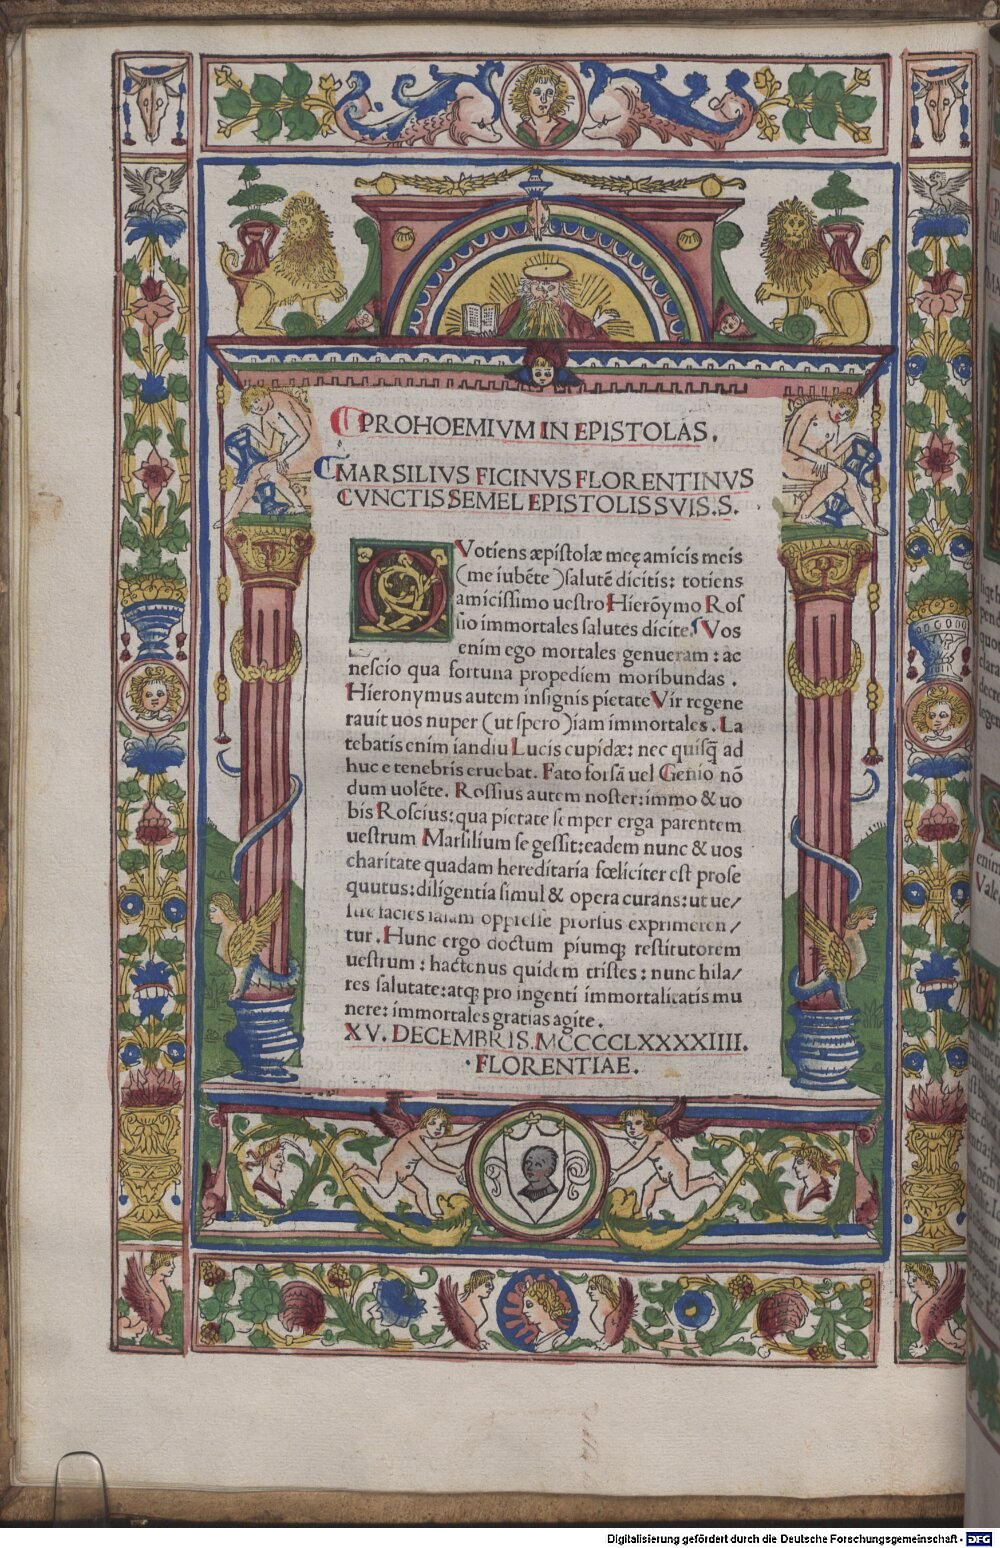 PROHOEMIVM IN EPISTOLAS.
MARSILIVS FICINVS FLORENTINVS
CVNCTIS SEMEL EPISTOLIS SVIS.S.
QVotiens æpistolæ meę amicis meis
(me iubēte) salutē dicitis: totiens
amicissimo uestro Hierōymo Ros
sio immortales salutes dicite. Vos
enim ego mortales genueram: ac
nescio qua fortuna propediem moribundas.
Hieronymus autem insignis pietate Vir regene
rauit uos nuper (ut spero) iam immortales. La
tebatis enim iandiu Lucis cupidæ: nec quisq̄ ad
huc e tenebris eruebat. Fato forsā uel Genio nō
dum uolēte. Rossius autem noster: immo & uo
bis Roscius: qua pietate semper erga parentem
uestrum Marsilium se gessit: eadem nunc & uos
charitate quadam hereditaria fœliciter est prose
quutus: diligentia simul & opera curans: ut ue/
opresse prorsus exprimeren/
tur. Hunc ergo doctum piumq; restitutorem
uestrum: hactenus quidem tristes: nunc hila/
res salutate: atq; pro ingenti immortalitatis mu
nere: immortales gratias agite.
XV. DECEMBRIS. MCCCCLXXXXIIII.
·FLORENTIAE.
Digitalisierung gefördert durch die Deutsche Forschungsgemeinschaft - DFG